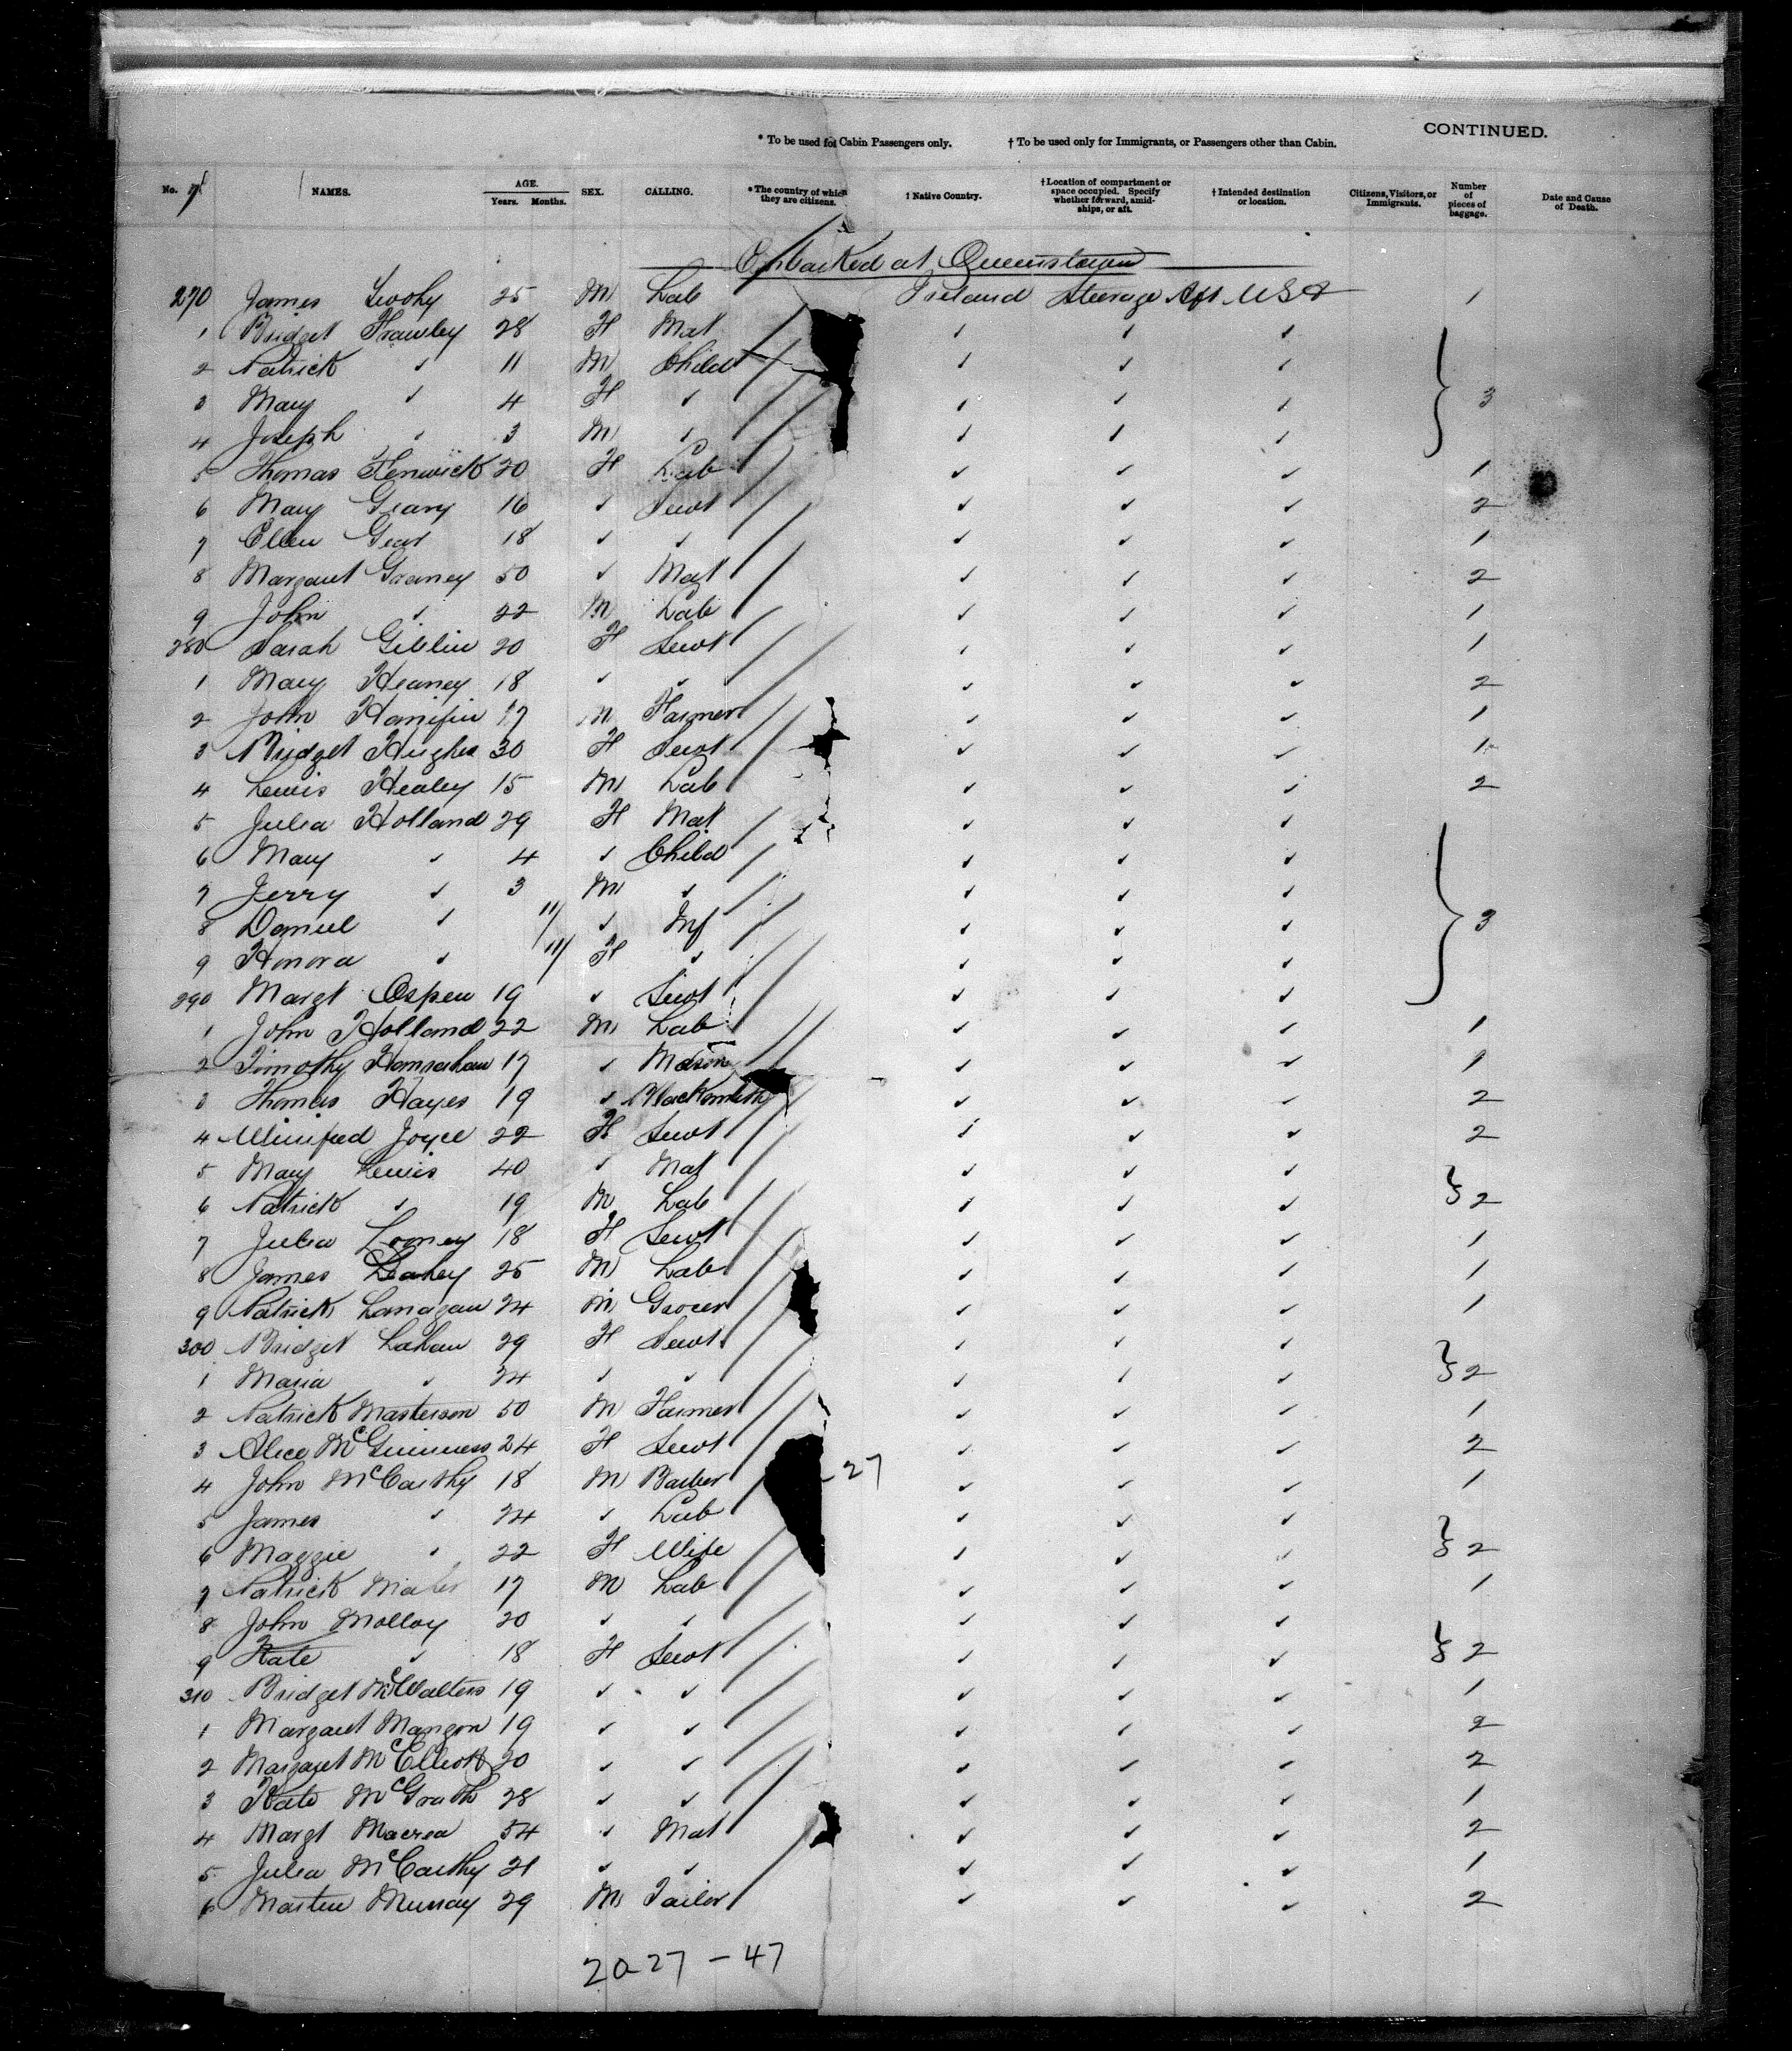 CONTINUED.
* To be used for Cabin Passengers only. † To be used only for Immigrants, or Passengers other than Cabin.
No. NAMES. AGE. Years. Months. SEX. CALLING. * The country of which they are citizens. † Native Country. † Location of compartment or space occupied. Specify whether forward, amidships, or aft. † Intended destination or location. Citizens, Visitors, or Immigrants. Number of pieces of baggage. Date and Cause of Death.
Embarked at Queenstown
270 James 25 M Lab Ireland Steerage Aft USA 1
1 Bridget Frawley 28 F Mat ✓ ✓ ✓
2 Patrick ✓ 11 M Child ✓ ✓ ✓
3 Mary ✓ 4 F ✓ ✓ ✓ ✓ } 3
4 Joseph ✓ 3 M ✓ ✓ ✓ ✓
5 Thomas Fenwick 20 F Lab ✓ ✓ ✓ 1
6 Mary Geary 16 ✓ Sevt ✓ ✓ ✓ 2
7 Ellen Gear 18 ✓ ✓ ✓ ✓ ✓ 1
8 Margaret Graney 50 ✓ Mat ✓ ✓ ✓ 2
9 John ✓ 22 M Lab ✓ ✓ ✓ 1
280 Sarah Giblin 20 F Sevt ✓ ✓ ✓ 1
1 Mary Heaney 18 ✓ ✓ ✓ ✓ ✓ 2
2 John Hanifin 17 M Farmer ✓ ✓ ✓ 1
3 Bridget Hughes 30 F Sevt ✓ ✓ ✓ 1
4 Lewis Healey 15 M Lab ✓ ✓ ✓ 2
5 Julia Holland 29 F Mat ✓ ✓ ✓
6 Mary ✓ 4 ✓ Child ✓ ✓ ✓
7 Jerry ✓ 3 M ✓ ✓ ✓ ✓
8 Daniel ✓ 11/ ✓ Inf ✓ ✓ ✓ } 3
9 Honora ✓ 11/ F ✓ ✓ ✓ ✓
290 Margt 19 ✓ Sevt ✓ ✓ ✓
1 John Holland 22 M Lab ✓ ✓ ✓ 1
2 Timothy Hanrahan 17 ✓ Mason ✓ ✓ ✓ 1
3 Thomas Hayes 19 ✓ Blacksmith ✓ ✓ ✓ 2
4 Winifred Joyce 22 F Sevt ✓ ✓ ✓ 2
5 Mary Lewis 40 ✓ Mat ✓ ✓ ✓
6 Patrick ✓ 19 M Lab ✓ ✓ ✓ } 2
7 Julia Looney 18 F Sevt ✓ ✓ ✓ 1
8 James Leahey 25 M Lab ✓ ✓ ✓ 1
9 Patrick Lanagan 24 M Grocer ✓ ✓ ✓ 1
300 Bridget Lahan 29 F Sevt ✓ ✓ ✓
1 Maria ✓ 24 ✓ ✓ ✓ ✓ ✓ } 2
2 Patrick Masterson 50 M Farmer ✓ ✓ ✓ 1
3 Alice McGuinness 24 F Sevt ✓ ✓ ✓ 2
4 John McCarthy 18 M Barber - 27 ✓ ✓ ✓ 1
5 James ✓ 24 ✓ Lab ✓ ✓ ✓
6 Maggie ✓ 22 F Wife ✓ ✓ ✓ } 2
7 Patrick 17 M Lab ✓ ✓ ✓ 1
8 John Molloy 20 ✓ ✓ ✓ ✓ ✓
9 Kate ✓ 18 F Sevt ✓ ✓ ✓ } 2
310 Bridget McWalters 19 ✓ ✓ ✓ ✓ ✓ 1
1 Margaret Mangon 19 ✓ ✓ ✓ ✓ ✓ 2
2 Margaret McElliott 20 ✓ ✓ ✓ ✓ ✓ 2
3 Kate McGrath 28 ✓ ✓ ✓ ✓ ✓ 1
4 Margt Macrea 54 ✓ Mat ✓ ✓ ✓ 2
5 Julia McCarthy 21 ✓ ✓ ✓ ✓ ✓ 1
6 Martin Murray 29 M Tailor ✓ ✓ ✓ 2
20-27 - 47